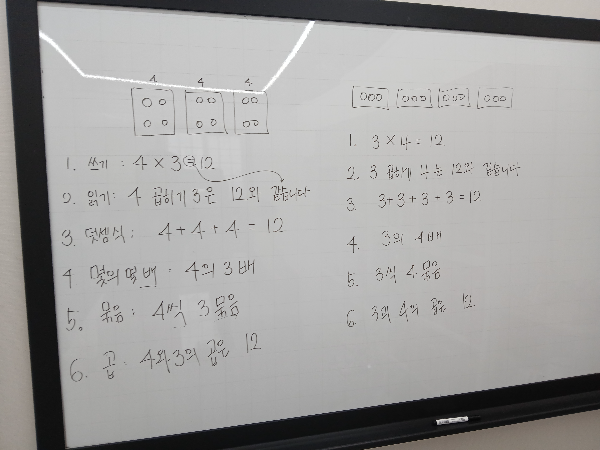 4 4 4
1. 쓰기 : 4 × 3 = 12
2. 읽기 : 4 곱하기 3은 12와 같습니다
3. 덧셈식 : 4 + 4 + 4 = 12
4 몇의 몇배 : 4의 3배
5. 묶음 : 4씩 3묶음
6. 곱 : 4와 3의 곱은 12
1. 3 × 4 = 12
2. 3 곱하기 4는 12와 같습니다
3. 3+3+3+3=12
4. 3의 4배
5. 3씩 4묶음
6. 3과 4의 곱은 12